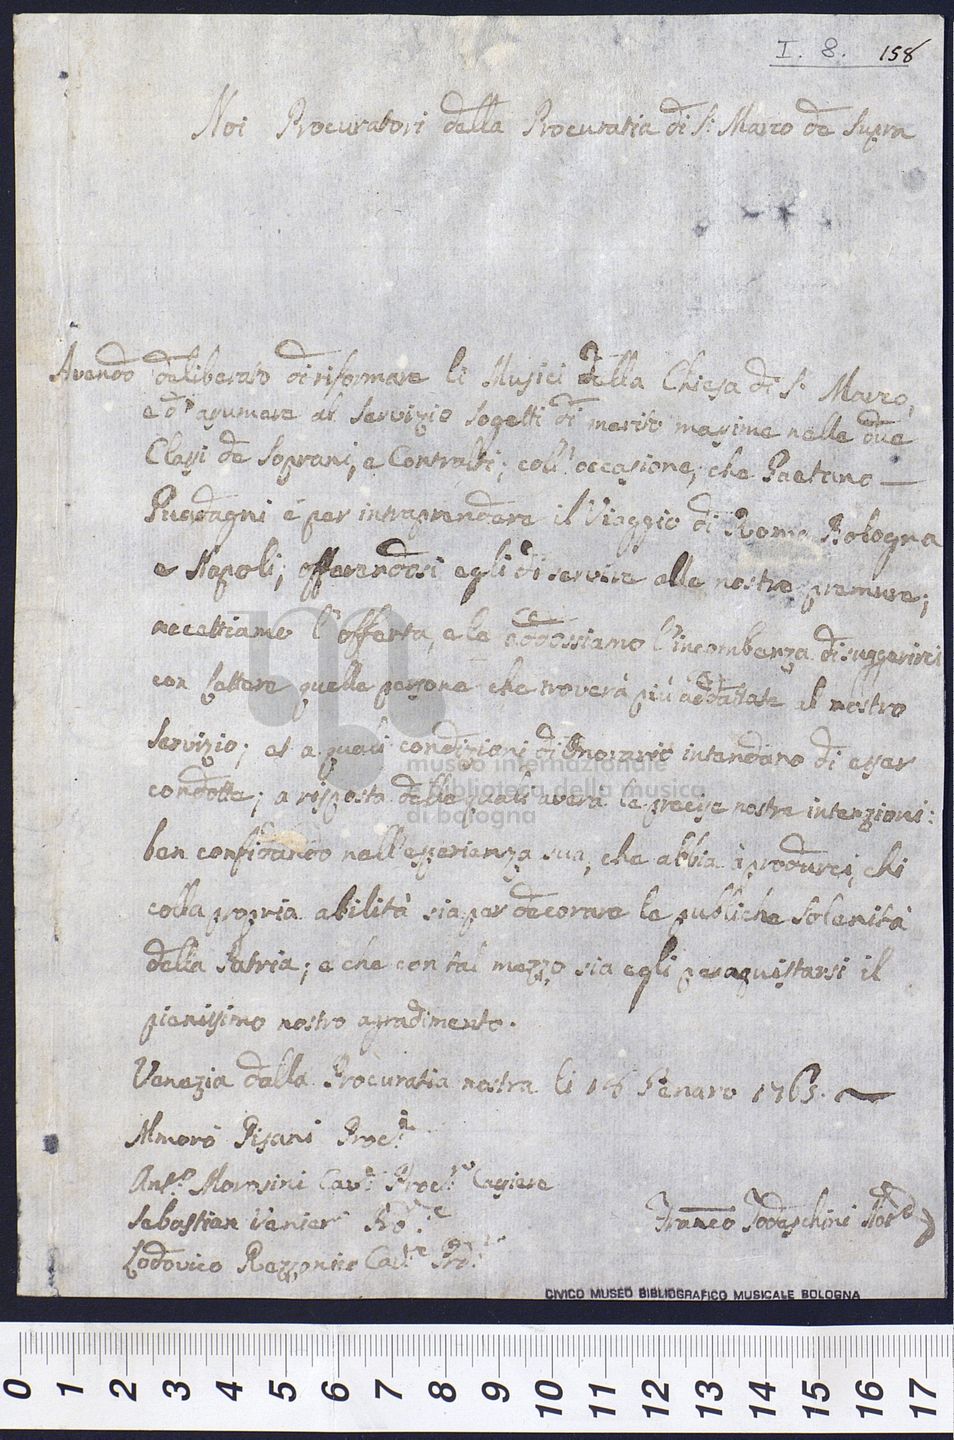 I. 8. 158
Noi Procuratori della Procuratia di S.n Marco de Supra
Avendo deliberato di riformare li Musici della Chiesa di S.n Marco,
e d'asumere al Servizio Sogetti di merito masime nelle due
Classi de Soprani, e Contralti; coll'occasione, che Gaetano —
Guadagni è per intraprendere il Viaggio di Roma Bologna
e Napoli; offerendosi egli di servire alle nostre premure;
accettiamo l'offerta, e le addossiamo l'incombenza di suggerirci
con Lettere quelle persone che troverà più addattate al nostro
Servizio; et a quali condizioni di Onorario intendano di esser
condotte; a risposta delle quali averà le precise nostre intenzioni:
ben confidando nell'esperienza sua, che abbia à produrci, chi
colla propria abilità sia per decorare le publiche Solenità
della Patria; e che con tal mezzo sia egli per aquistarsi il
pienissimo nostro agradimento.
Venezia dalla Procuratia nostra li 18 Genaro 1763.
Almorò Pisani Proc.r
Ant.o Morosini Cav.r Proc.r Casiere
Sebastian Venier Pro.r
Lodovico Rezzonico Cav.r Pro.r
Franco Todeschini Nod
museo internazionale
e biblioteca della musica
di bologna
CIVICO MUSEO BIBLIOGRAFICO MUSICALE BOLOGNA
0 1 2 3 4 5 6 7 8 9 10 11 12 13 14 15 16 17